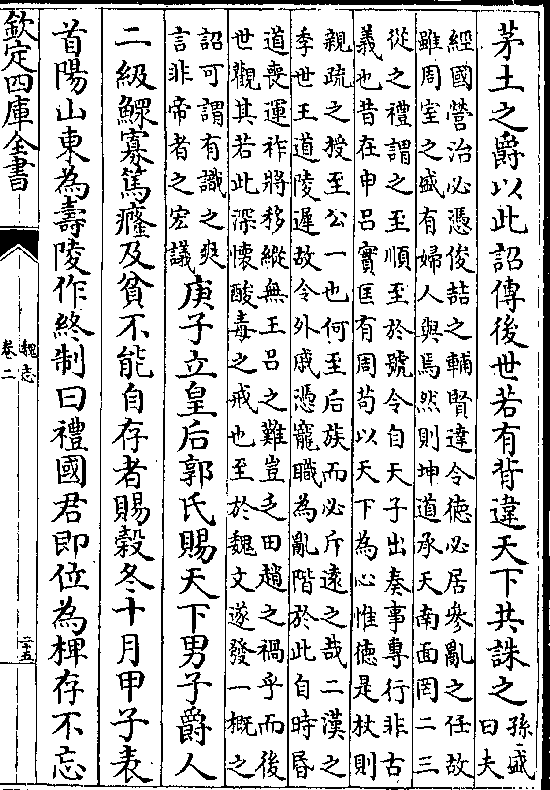 茅土之爵以此詔傳後世若有背違天下共誅之
孫盛
曰夫
經國營治必憑俊喆之輔賢達令德必居參亂之任故
雖周室之盛有婦人與焉然則坤道承天南面罔二三
從之禮謂之至順至於號令自天子出奏事專行非古
義也昔在申呂實匡有周苟以天下為心惟德是杖則
親疏之授至公一也何至后族而必斥遠之哉二漢之
季世王道陵遲故令外戚憑寵職為亂階於此自時昏
道喪運祚將移縱無王呂之難豈乏田趙之禍乎而後
世觀其若此深懷酸毒之戒也至於魏文遂發一概之
詔可謂有識之爽
言非帝者之宏議
庚子立皇后郭氏賜天下男子爵人
二級鰥寡篤癃及貧不能自存者賜穀冬十月甲子表
首陽山東為壽陵作終制曰禮國君即位為椑存不忘
欽定四庫全書
魏志
卷二
二十五